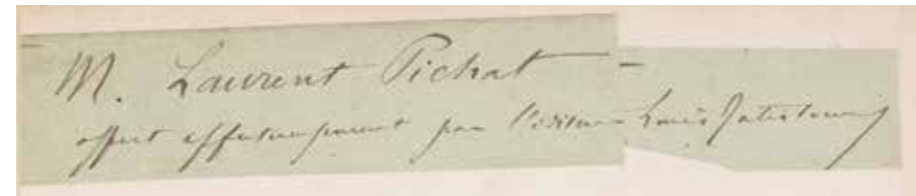 M. Laurent Pichat
offert affectueusement par l'éditeur Louis